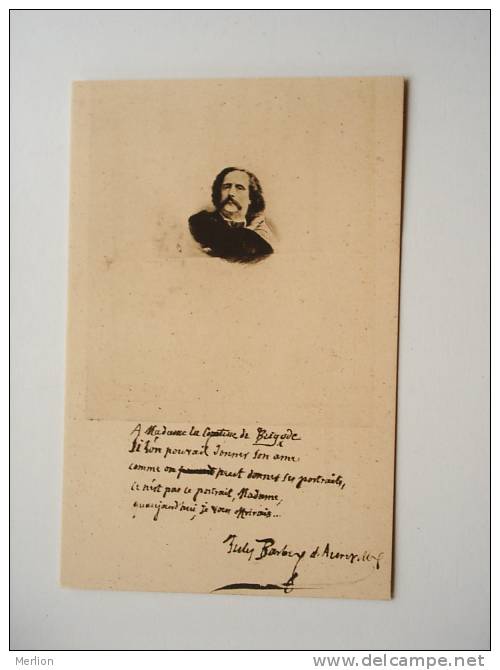 A Madame la Comtesse de Brigode
Si l'on pouvait donner son âme
comme on peut donner ses portraits,
ce n'est pas ce portrait, Madame,
qu'aujourd'hui, je vous offrirais...
Jules Barbey d'Aurevilly
Merlion
http://www.delcampe.net